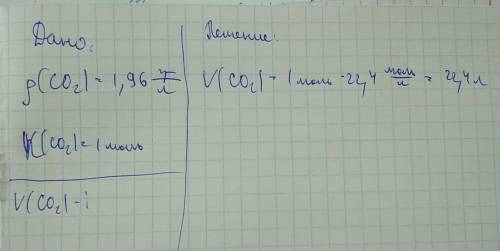 Дано:
ρ(CO₂) = 1,96 г/л
V(CO₂) = 1 моль
V(CO₂) - ?
Решение:
V(CO₂) = 1 моль · 22,4 моль/л = 22,4 л